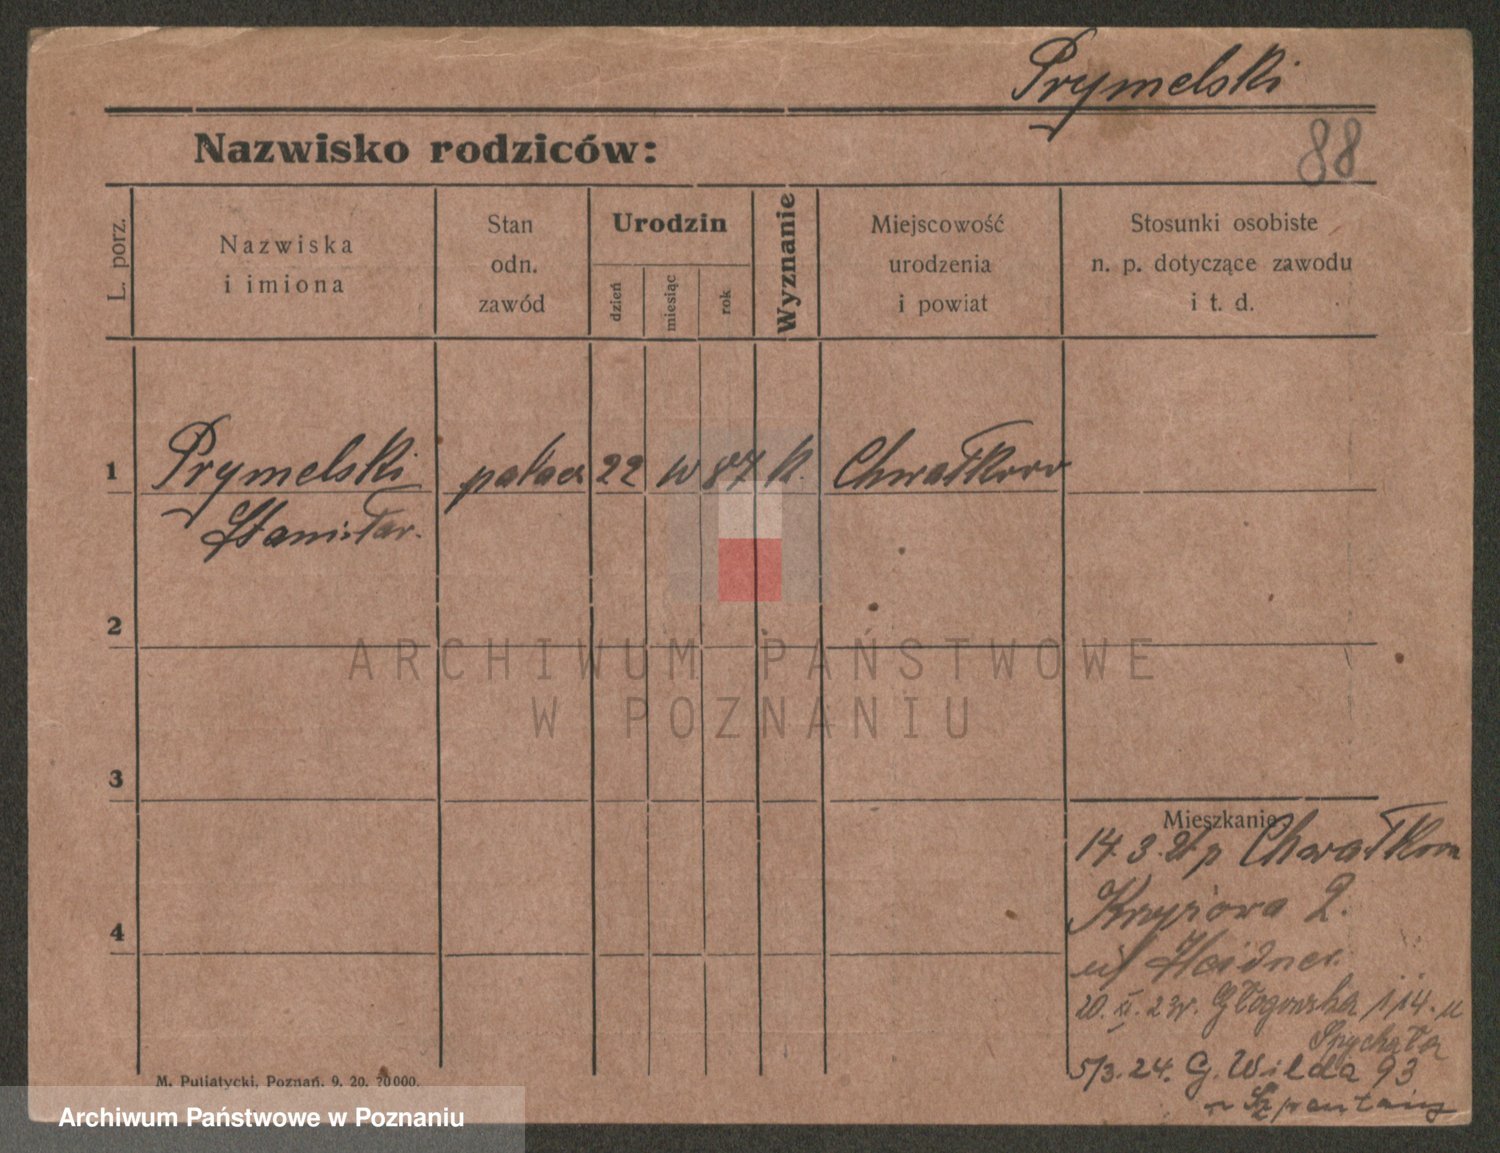 Prymelski
Nazwisko rodziców:
88
L. porz.
Nazwiska
i imiona
Stan
odn.
zawód
Urodzin
dzień
miesiąc
rok
Wyznanie
Miejscowość
urodzenia
i powiat
Stosunki osobiste
n. p. dotyczące zawodu
i t. d.
1
Prymelski
Stanisław.
palacz
22
87
k.
Chwałkowo
2
ARCHIWUM PAŃSTWOWE
W POZNANIU
3
Mieszkanie
14.3. Chwałkowa
2.
u/ Haidner.
4
20. XI. 23r. Głogowska 114. u
Spychała
5/3.24. G. Wilda 93
M. Putiatycki, Poznań. 9. 20. 20000.
Archiwum Państwowe w Poznaniu